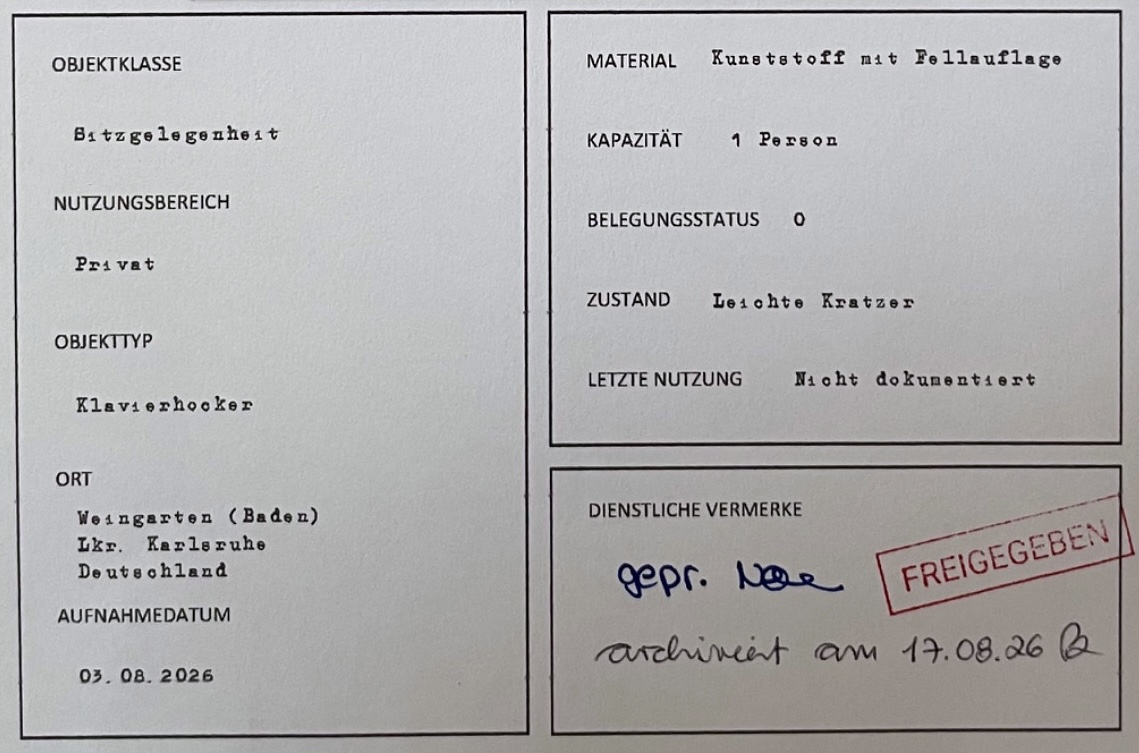 OBJEKTKLASSE
Sitzgelegenheit
NUTZUNGSBEREICH
Privat
OBJEKTTYP
Klavierhocker
ORT
Weingarten (Baden)
Lkr. Karlsruhe
Deutschland
AUFNAHMEDATUM
03.08.2026
MATERIAL Kunststoff mit Fellauflage
KAPAZITÄT 1 Person
BELEGUNGSSTATUS 0
ZUSTAND Leichte Kratzer
LETZTE NUTZUNG Nicht dokumentiert
DIENSTLICHE VERMERKE
gepr.
FREIGEGEBEN
archiviert am 17.08.26